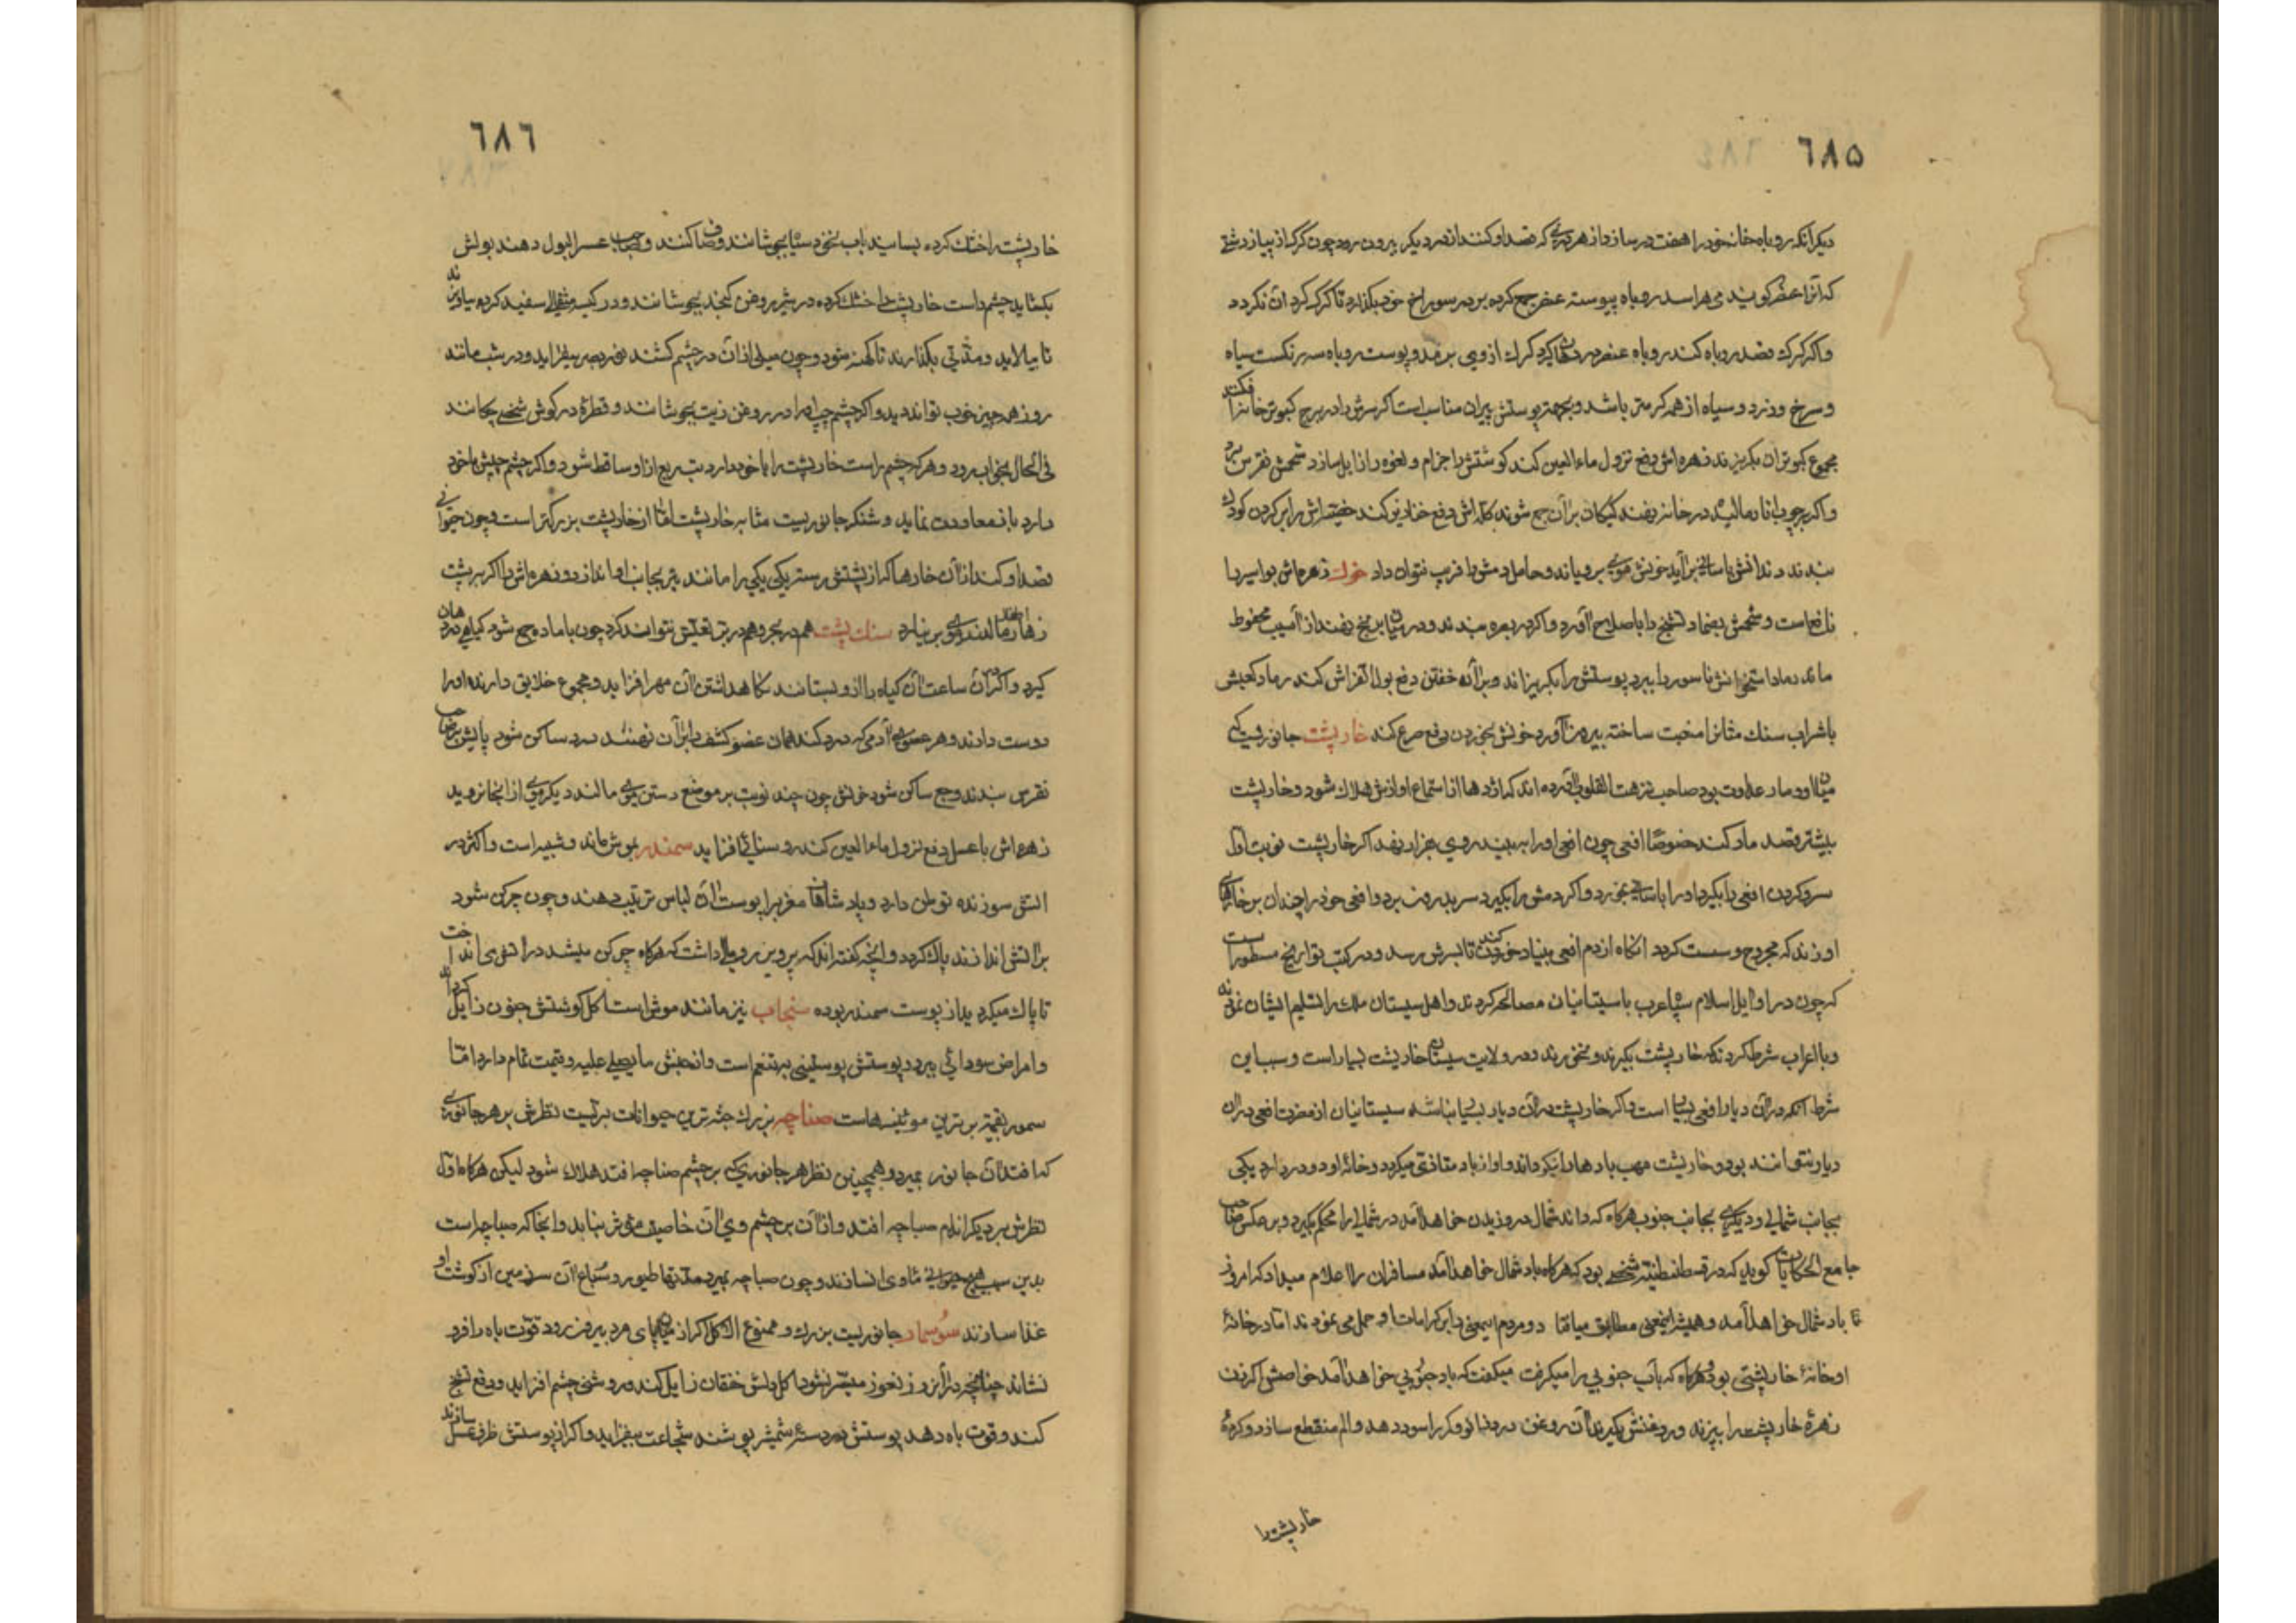 ٦٨٥
دیکر انکه روباه خانه خود را هفت در سازد از هر دری که قصد او کنند از در دیکر بیرون رود چون کرک از پیاز دشتی
که آنرا عنصر کویند می هراسد روباه پیوسته عنصر جمع کرده بر در سوراخ خود بکذارد تا کرک کرد آن نکردد
واکر کرک قصد روباه کند روباه عنصر در دهان کیرد کرک از وی برمد و پوست روباه سه رنکست سیاه
و سرخ و زرد و سیاه از همه کرمتر باشد و بجهة پوستش پیران مناسب است اکر سرش را در برج کبوتر خانه افکنند
مجموع کبوتران بکریزند زهره اش دفع نزول ماء العین کند کوشتش جزام و لقوه را زایل سازد شحمش نقرس ببرد
واکر بر چوب انار مالیده در خانه نهند کیکان بر آن جمع شوند کله اش دفع خنازیر کند خصیه اش را بر کردن کودک
بندند دندانش باسانی بر آید خونش موی برویاند و حامل دمش را فریب نتوان داد خوک زهره اش بواسیر را
نافع است و شحمش بضماد تشنج را باصلاح آورد واکر بر بهره بندند و در میان برنج نهند از آسیب محفوظ
ماند رماد استخوانش ناسور را ببرد پوستش را بکریزاند و بر آن خفتن دفع بول الفراش کند رماد کعبش
با شراب سنک مثانه را مفتت ساخته بیرون آورد خونش بخوردن دفع صرع کند خارپشت جانوریست که
میان او و مار عداوت بود صاحب نزهت القلوب آورده اند که اژدها از استماع اوازش هلاک شود و خارپشت
بیشتر قصد مار کند خصوصا افعی چون افعی او را به بیند روی بفرار نهد اکر خارپشت نوبت اول
سر و کردن افعی را بکیرد او را باسانی بخورد و اکر دمش را بکیرد سر بدرون برد و افعی خود را چندان بر خارهای
او زند که مجروح و سست کردد انکاه از دم افعی بنیاد خوردن کند تا بسرش رسد و در کتب تواریخ مسطور است
که چون در اوایل اسلام سپاه عرب با سیستانیان مصالحه کردند و اهل سیستان ملک را تسلیم ایشان نمودند
و با اعراب شرط کردند که خارپشت نکیرند و نخورند و در ولایت سیستان خارپشت بسیار است و سبب این
شرط آنکه در آن دیار افعی بسیار است و اکر خارپشت در آن دیار بسیار نباشد سیستانیان از مضرت افعی در آن
دیار نتوانند بود و خارپشت مهب بادها را نیکو داند و او از باد متاذی میکردد و خانه او دو در دارد یکی
بجانب شمالی و دیکری بجانب جنوب هرکاه که داند شمال در وزیدن خواهد آمد در شمالی را محکم بکیرد و بر عکس صاحب
جامع الحکایات کوید که در قسطنطنیه شخصی بود که هرکاه باد شمال خواهد آمد مسافران را اعلام میداد که امروز
تا باد شمال خواهد آمد و همیشه این معنی مطابق میافتاد و مردم این معنی را بر کرامات او حمل می نمودند اما در خانهٔ
او خانهٔ خارپشتی بود و هرکاه که باب جنوبی را میکرفت میکفت که باد جنوبی خواهد آمد خواصش اکر در
زهرهٔ خارپشت را بپزند و روغنش بکیرند آن روغن درد زانو و کمر را سود دهد و الم منقطع سازد و کردهٔ
خارپشت را
٦٨٦
خارپشت را خشک کرده بسایند باب نخود سیاه بجوشانند و صاف کنند و بصاحب عسر البول دهند بولش
بکشاید چشم راست خارپشت را خشک کرده در شیر روغن کنجد بجوشانند و در کیسه مثقالی سفید کرده بیاویزند
تا بپالاید و مدتی بکذارند تا کهنه شود و چون میلی از آن در چشم کشند نور بصر بیفزاید و در شب مانند
روز همه چیز خوب تواند دید و اکر چشم چپ او را در روغن زیت بجوشانند و قطرهٔ در کوش شخصی چکانند
فی الحال بخواب رود و هر که چشم راست خارپشت را با خود دارد تب ربع از او ساقط شود و اکر چشم چپش با خود
دارد باز معاودت نماید و شنکر جانوریست مشابه خارپشت اما از خارپشت بزرکتر است و چون حیوانی
قصد او کند از آن خارها که از پشتش رسته یکی یکی را مانند تیر بجانب او اندازد و زهره اش را اکر بر پشت
زهار مالند موی بر نیارد سنک پشت هم در بحر و هم در بر تعیش تواند کرد چون با ماده جمع شود کیاهی در دهان
کیرد و اکر در آن ساعت آن کیاه را از و بستانند نکاهداشتن آن مهر افزاید و مجموع خلایق دارنده او را
دوست دارند و هر عضوی از آدمی که درد کند همان عضو کشف را بر آن نهند درد ساکن شود پایش بر صاحب
نقرس بندند وجع ساکن شود خونش چون چند نوبت بر موضع رستن موی مالند دیکر موی از انجا نروید
زهره اش با عسل دفع نزول ماء العین کند روشنائی افزاید سمندر بموش ماند و شبیه است و اکثر در
اتش سوزنده توطن دارد و پادشاهان مغرب را از پوست آن لباس ترتیب دهند و چون چرکن شود
بر اتش اندازند پاک کردد و انچه کفته اند که پرویز رومالی داشت که هرکاه چرکن میشد در اتش می انداخت
تا پاک میکردید از پوست سمندر بوده سنجاب نیز مانند موش است اکل کوشتش جنون زایل کرداند
و امراض سودائی ببرد و پوستش پوستینی بر تنعم است و از جنس ما یصلی علیه و قیمت تمام دارد اما
سمور بقیمة برترین موئینهاست صناجه بزرک جثه ترین حیوانات بریست نظرش بر هر جانوری
که افتد آن جانور بمیرد و همچنین نظر هر جانوری که بر چشم صناجه افتد هلاک شود لیکن هرکاه اول
نظرش بر دیکر اندام صباجه افتد و از آن بر چشم وی آن خاصیت موثر نیاید و انجا که صباجه است
بدین سبب هیچ حیوانی ماوی نسازند و چون صباجه بمیرد مدتها طیور و سباع آن سرزمین از کوشت او
غذا سازند سوسمار جانوریست بزرک و ممنوع الاکل اکر از میان پای مرد بیرون رود قوت باه را فرو
نشاند چنانچه در آنروز نعوذ میسر نشود اکل دلش خفقان زایل کند و روشنی چشم افزاید و دفع تشنج
کند و قوت باه دهد پوستش بر دستهٔ شمشیر پوشند شجاعت بیفزاید و اکر از پوستش ظرف عسل سازند